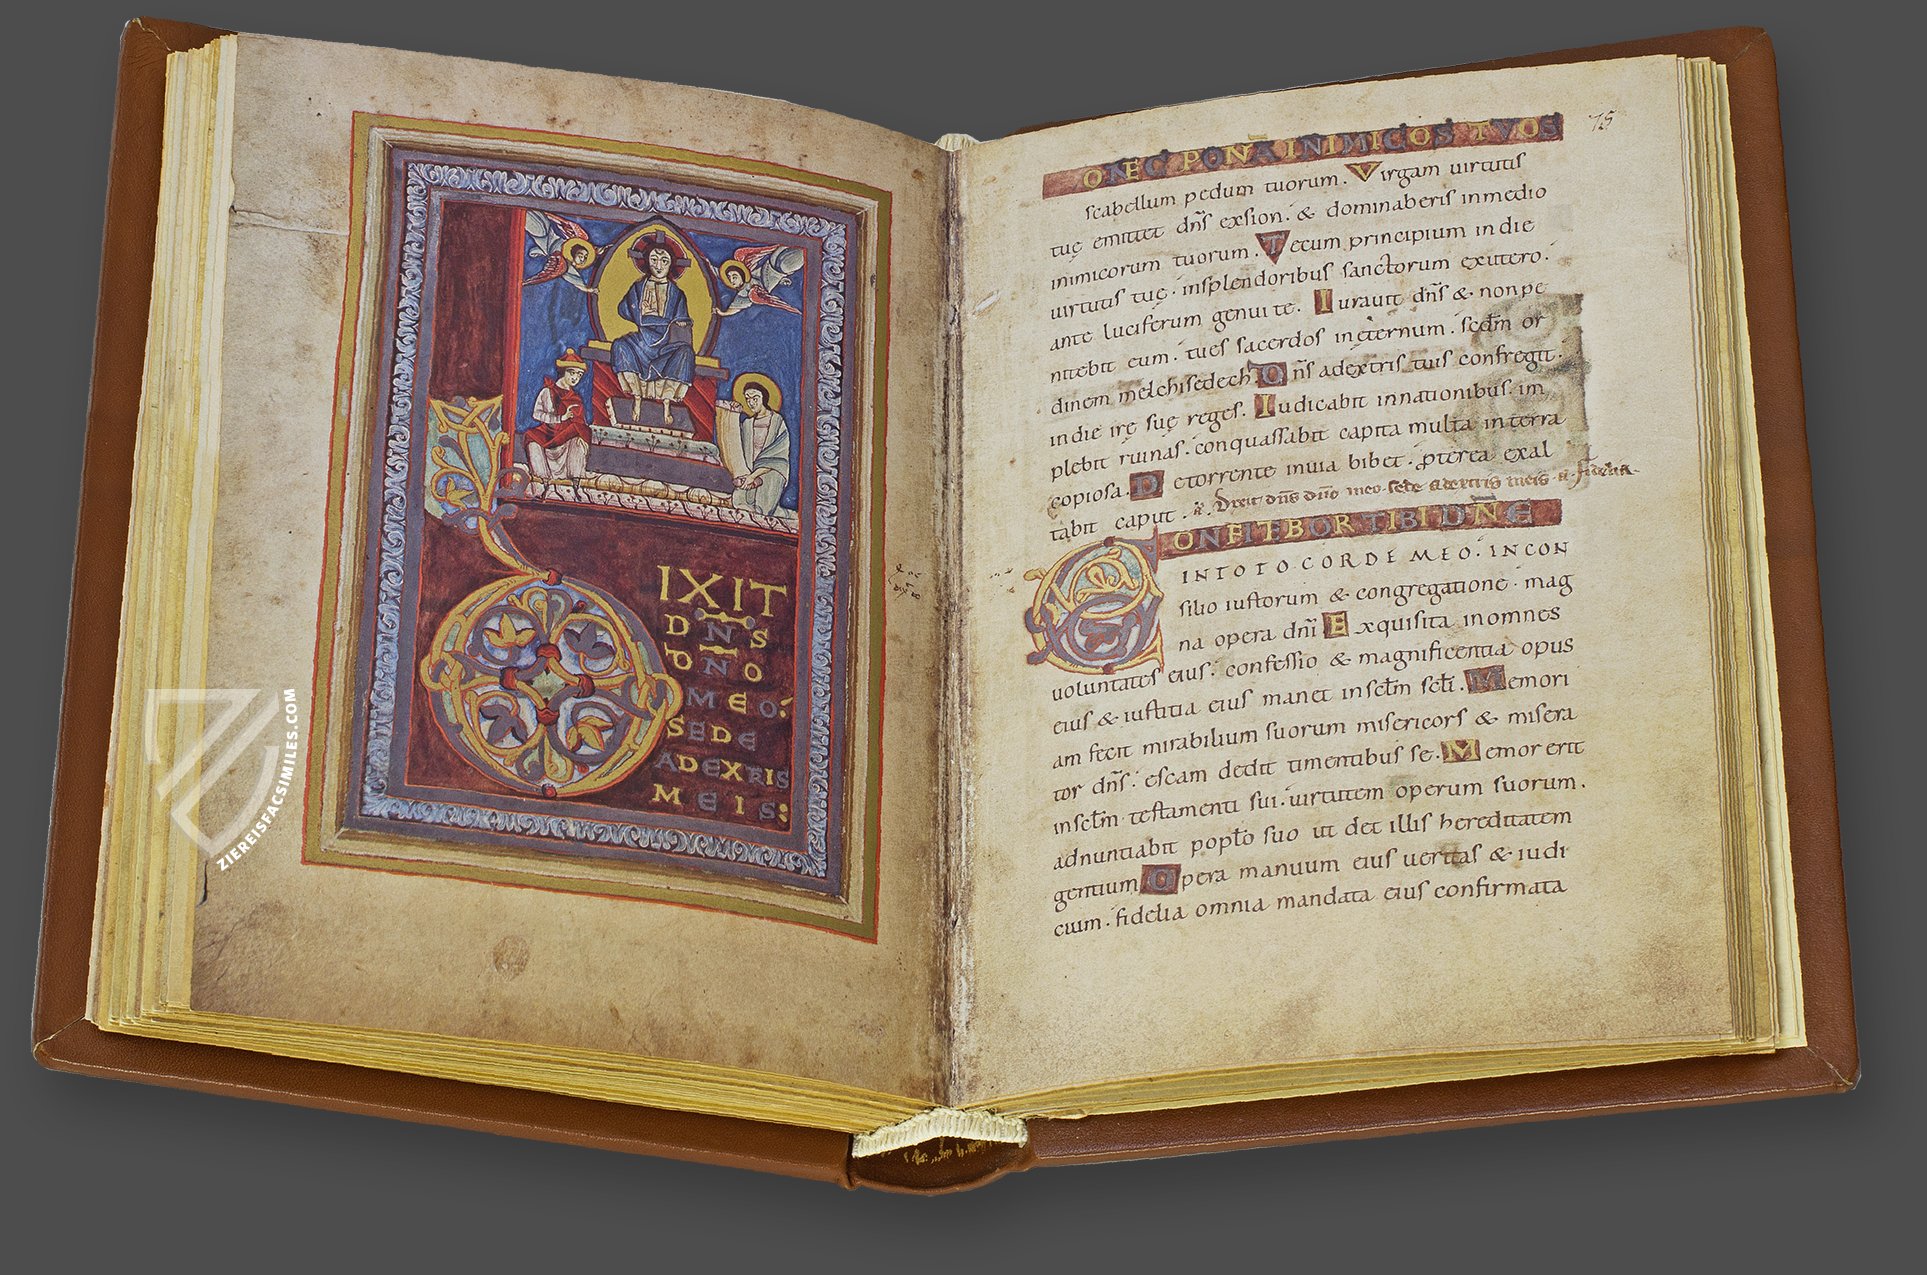 IXIT
DN̄S
DN̄O
MEO:
SEDE
ADEXTRIS
MEIS:
ZIEREISFACSIMILES.COM
75
ONEC PON̄A INIMICOS TVOS
scabellum pedum tuorum. Virgam uirtutis
tuę emittet dn̄s exsion. & dominaberis inmedio
inimicorum tuorum. Tecum principium indie
uirtutis tuę. insplendoribus sanctorum exutero.
ante luciferum genui te. Iurauit dn̄s & nonpe
nitebit eum. tues sacerdos ineternum. secd̄m or
dinem melchisedech. Dn̄s adextris tuis confregit.
indie irę suę reges. Iudicabit innationibus. im
plebit ruinas. conquassabit capita multa interra
copiosa. Detorrente inuia bibet. ꝓterea exal
tabit caput.
a. Dixit dn̄s dn̄o meo. sede adextris meis. a. fidelia
ONFITEBOR TIBI DN̄E
INTOTOCORDE MEO. INCON
silio iustorum & congregatione. mag
na opera dn̄i Exquisita inomnes
uoluntates eius. confessio & magnificentia opus
eius & iustitia eius manet insclm̄ scl̄i. Memori
am fecit mirabilium suorum misericors & misera
tor dn̄s. escam dedit timentibus se. Memor erit
insclm̄. testamenti sui. uirtutem operum suorum.
adnuntiabit popl̄o suo ut det illis hereditatem
gentium Opera manuum eius ueritas & iudi
cium. fidelia omnia mandata eius confirmata